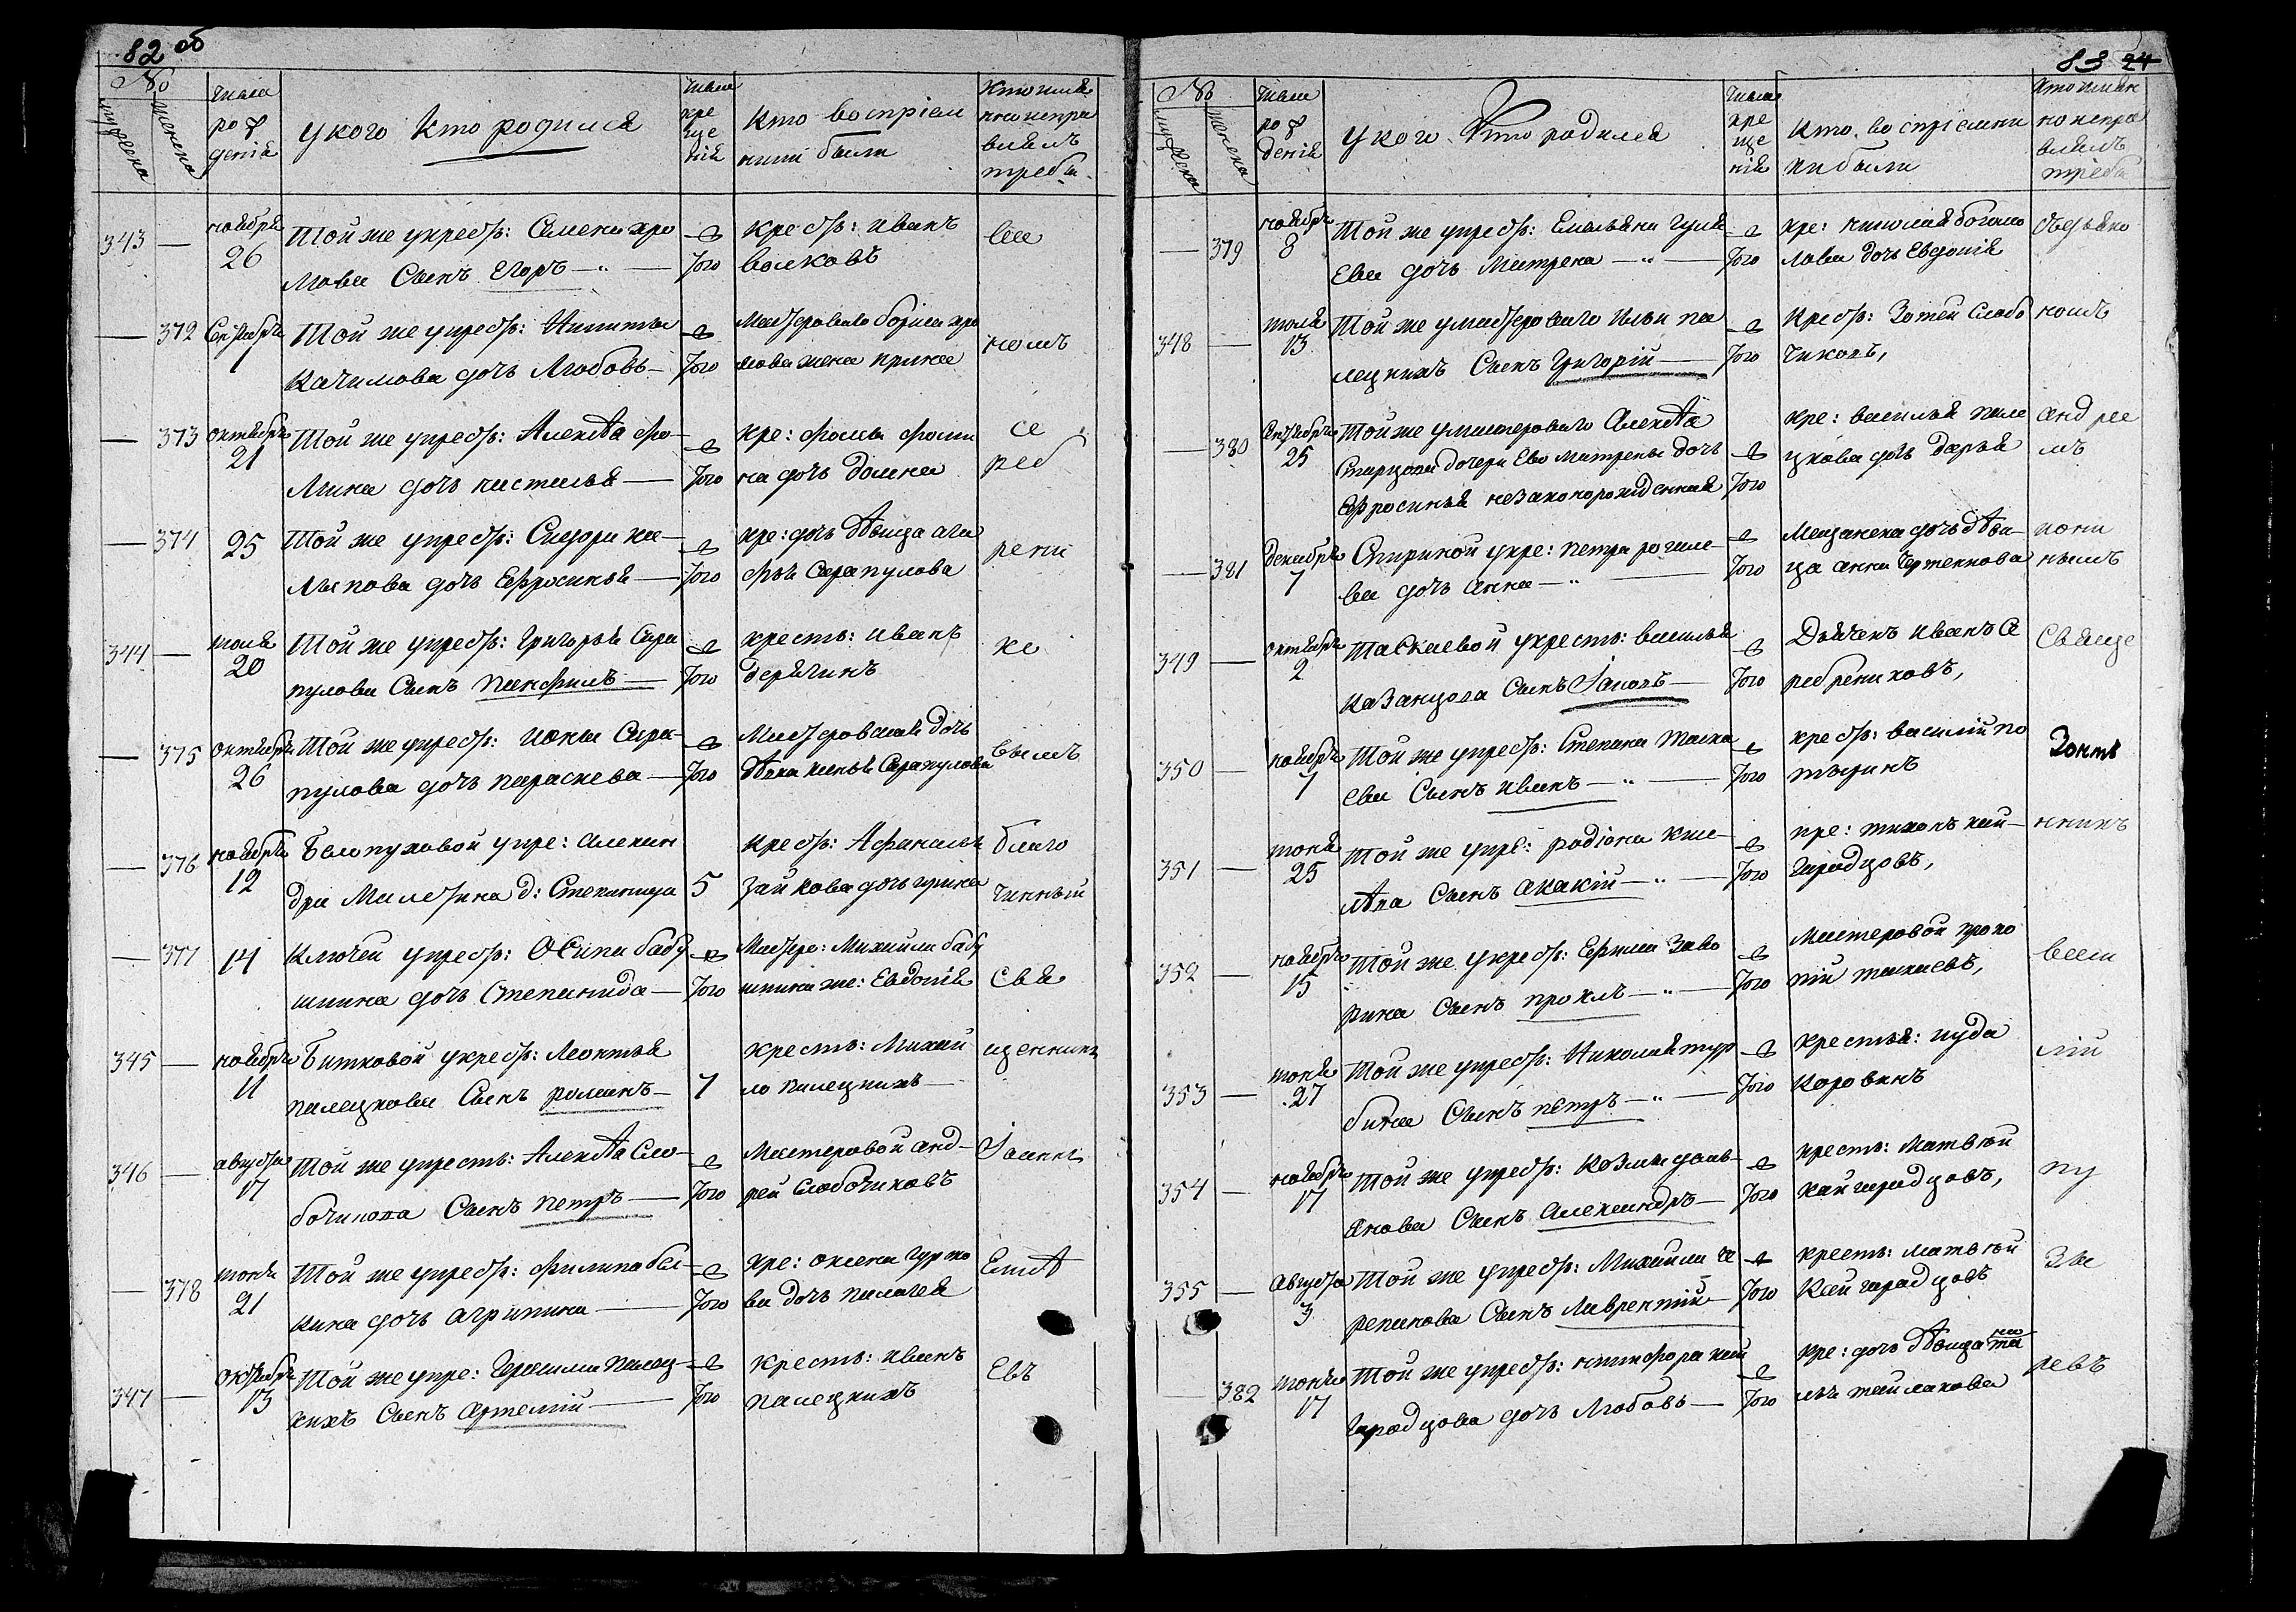 82 об
№
мужеска
женска
числа
рож
денія
у кого кто родился
числа
кре
ще
нія
кто воспріем
ники были
кто имя
нно испра
влялъ
требы
343 — ноября
26
Той же у крестъ: Семена хро
мова Сынъ Егоръ —
—
Того
крестъ: Иванъ
волковъ
все
— 372 Сентября
1
Той же у крестъ: Никиты
Качимова дочь Любовь —
Того
Мастероваго бориса хро
мова жена ирина
номъ
— 373 октября
21
Той же у крестъ: Алексѣа фо-
мина дочь настасья —
Того
кре: фомы фоми
на дочь домна
Се
реб
— 374 25
Той же у крестъ: Сидора ка-
лыпова дочь Ефросинья —
Того
кре: дочь дѣвица ага
фья Сарапулова
рени
344 — 
20
Той же у крестъ: Григорья Сара
пулова Сынъ панфилъ —
Того
кресть: иванъ
дерягинъ
ко
— 375 октября
26
Той же у крестъ: ионы Сара-
пулова дочь параскева —
Того
Мастеровая дочь
дѣвка Сарапулова
вымъ
— 376 ноября
12
Белопуховой у кре: алексан
дра д: Степанида
5
крестъ: Афанасья
зайкова дочь ирина
благо
чинный
— 377 14
Ключей у крестъ: Осипа бабу
шкина дочь Степанида —
Того
Мастеро: Михаила бабу
шкина же: Евдокія
Свя
345 — ноября
11
Битковой у крестъ: Леонтья
палецкова Сынъ романъ —
7
кресть: Михай
ло палецкихъ —
щенникъ
346 — августа
17
Той же у кресть: Алексѣа Сло-
бочикова Сынъ петръ —
Того
Мастеровой анд-
рей Слобочиковъ
Іоаннъ
— 378
21
Той же у крестъ: филипа бал-
кина дочь агрипина —
Того
кре: оксена гурко
ва дочь палагея
Елисѣ
347 — октября
13
Той же у кре: Герасима палец-
кихъ Сынъ артемій —
Того
кресть: иванъ
палецкихъ
Евъ
83 24
№
мужеска
женска
числа
рож
денія
у кого кто родился
числа
кре
ще
нія
кто воспріемни
ки были
кто имян
но испра
влялъ
требы
— 379 ноября
8
Той же у крестъ: Емельяна гуля
ева дочь Матрена —
Того
кре: николая богомо
лова дочь Евдокія
съ дьяко
348 — 
13
Той же у мастероваго ильи па
лецкихъ Сынъ Григорій —
Того
крестъ: Зотей Слобо
чиковъ,
номъ
— 380 Сентября
25
Той же у мастероваго Алексѣа
Старцова дочери Ево Матрены дочь
Ефросинья незаконорожденная
Того
кре: василья пале
цкова дочь дарья
андрее
мъ
— 381 декабря
7
Спириной у кре: петра рогале-
ва дочь анна —
Того
Мещанска дочь дѣви-
ца анна Чертенкова
пони
нымъ
349 — октября
2
Таскаевой у кресть: василья
казанцова Сынъ Іаковъ —
Того
Дьячекъ иванъ Се
ребрениковъ,
Свяще
350 — ноября
7
Той же у крестъ: Степана Таска
ева Сынъ иванъ —
Того
крестъ: василій по
тыринъ
351 —
25
Той же у кре: радіона
Сынъ акакій —
Того
кре: тихонъ кай-
городцовъ,
нникъ
352 — ноября
15
Той же у крестъ: Ефима Заво
рина Сынъ проклъ —
Того
Мастеровой проко
пій таскаевъ,
васи
353 — 
27
Той же у крестъ: Николая тур
бина Сынъ петръ —
Того
крестья: иуда
коровинъ
лій
354 — ноября
17
Той же у крестъ: козмы домъ-
янова Сынъ александръ —
Того
кресть: матвѣй
кайгородцовъ,
пу
355 — августа
3
Той же у крестъ: Михаила Че
репанова Сынъ Лаврентій —
Того
кресть: матвѣй
кайгородцовъ
зы
— 382
17
Той же у крестъ: никифора кай
городцова дочь Любовь —
Того
кре: дочь дѣвица ната
лья таилакова
ревъ